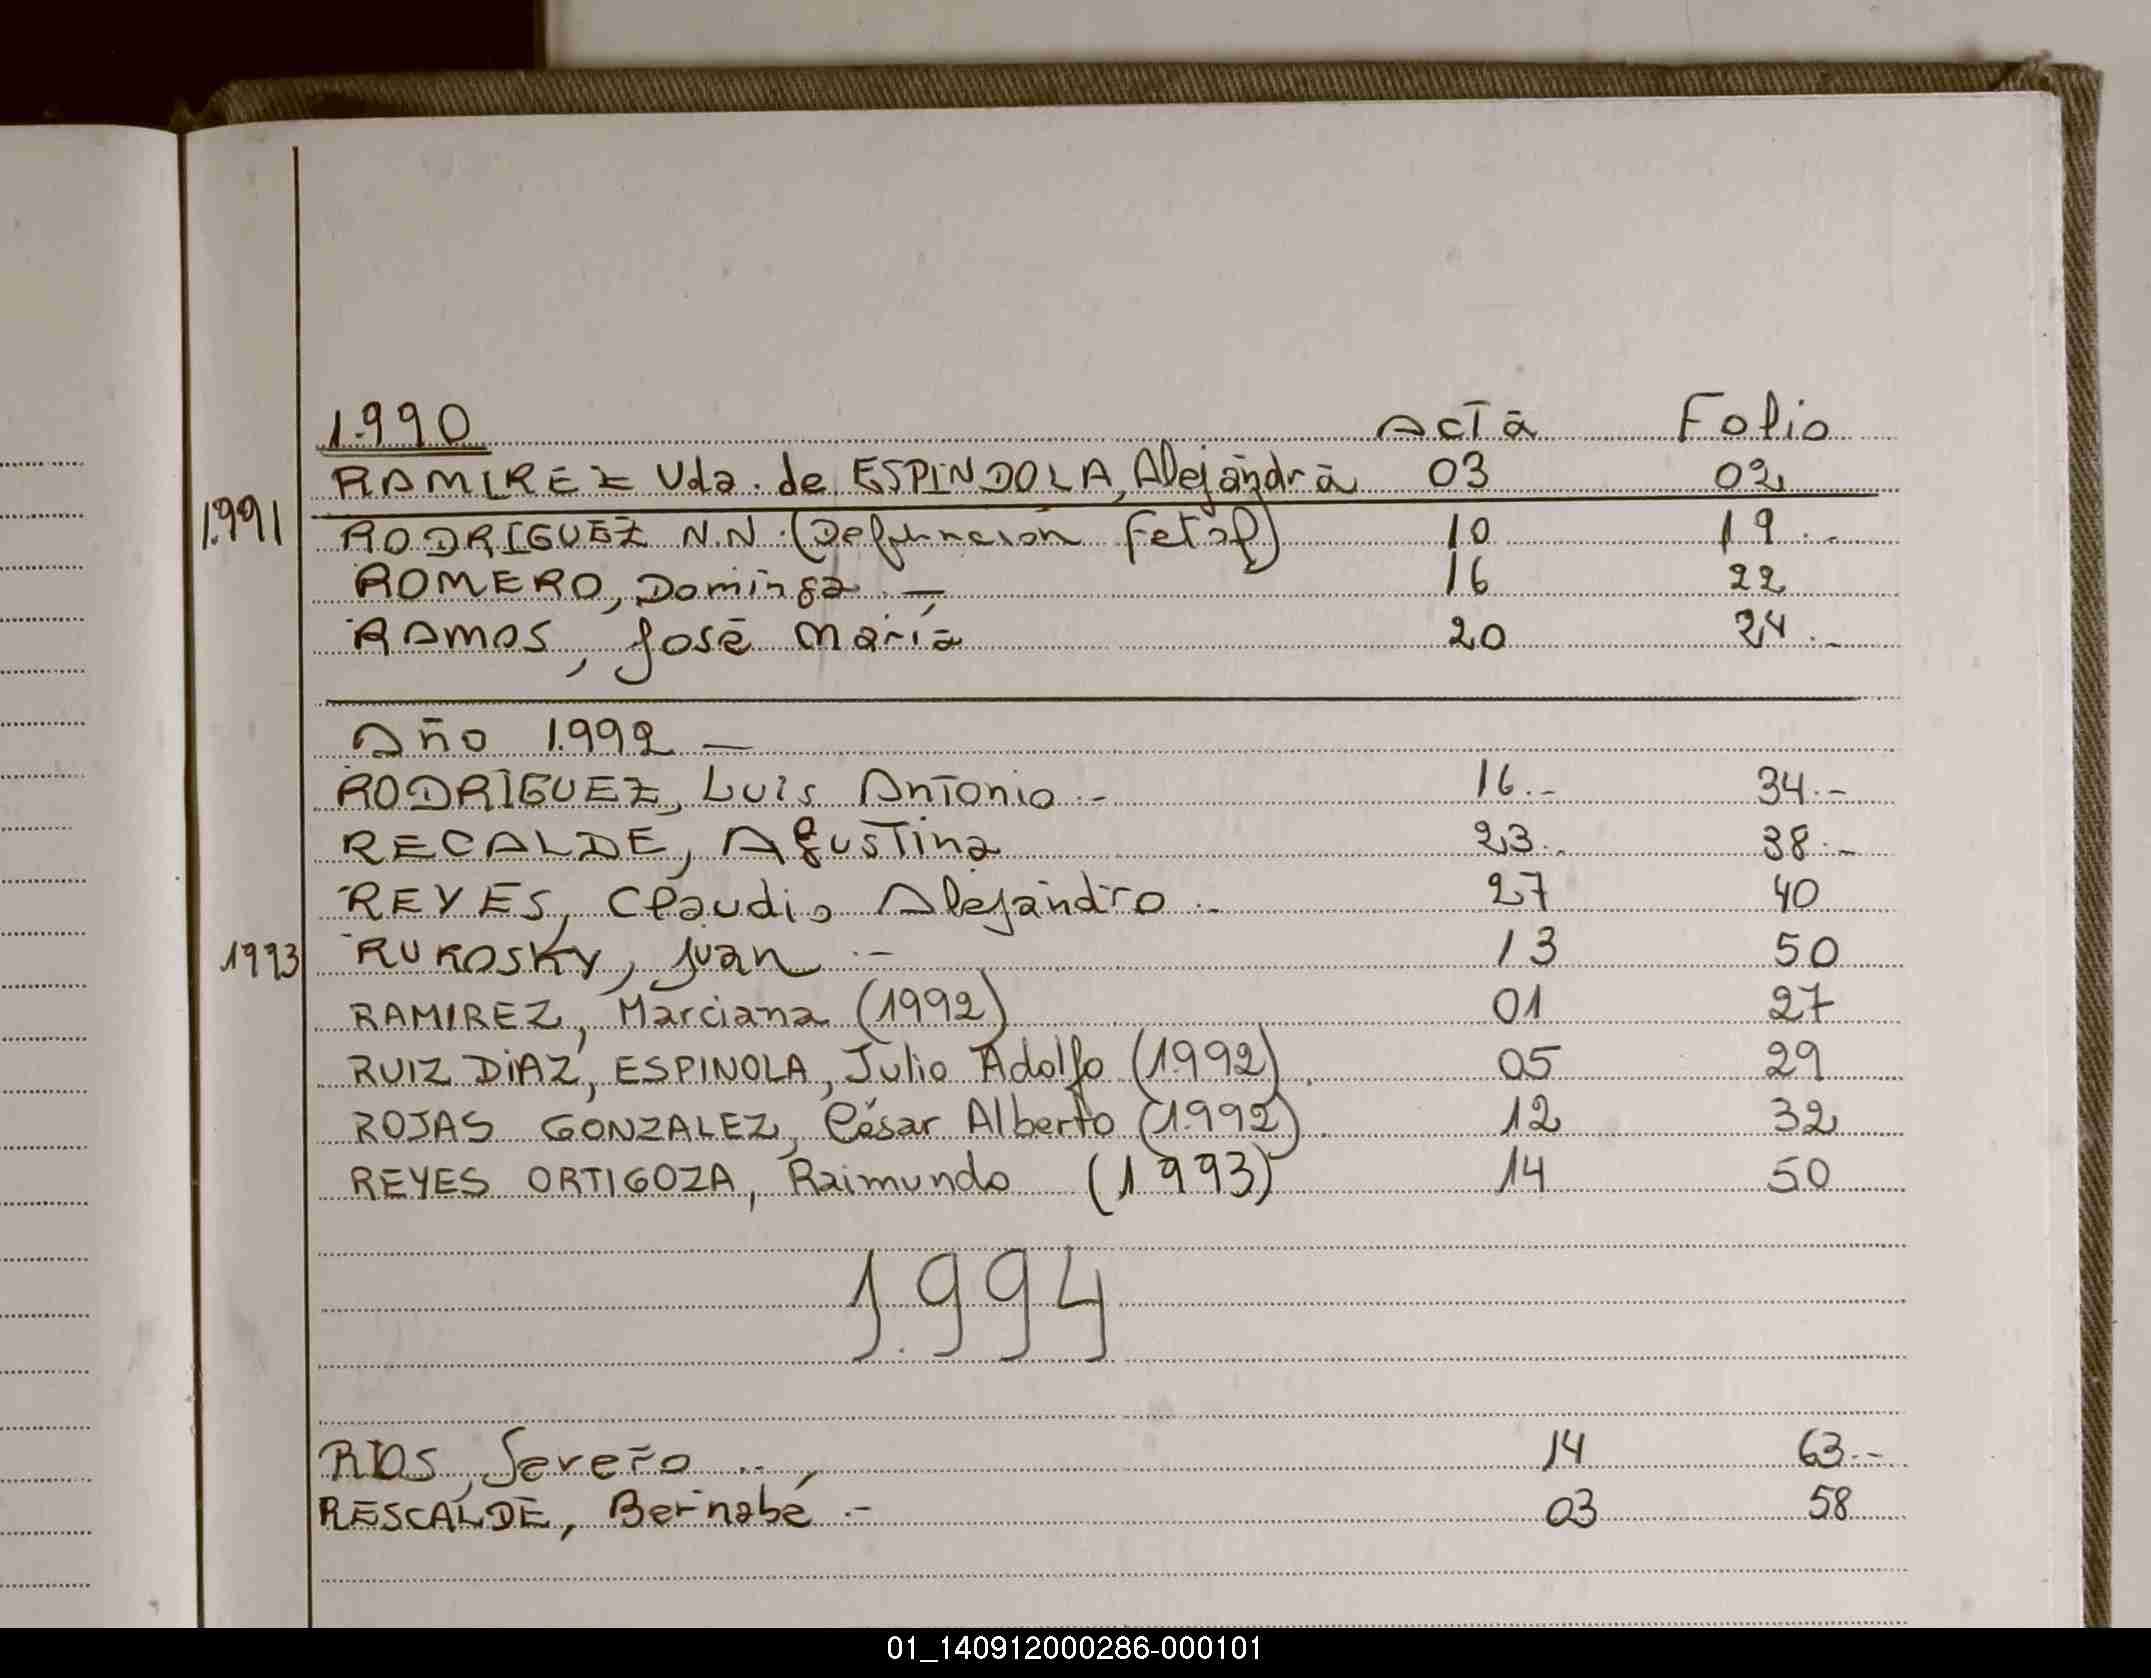 1.990 Acta Folio
RAMIREZ Vda. de ESPINDOLA, Alejandra 03 02
1.991 RODRIGUEZ N.N. (Defunción Fetal) 10 19.-
ROMERO, Dominga.- 16 22
RAMOS, José María 20 24.-
Año 1.992 -
RODRÍGUEZ, Luis Antonio.- 16.- 34.-
RECALDE, Agustina 23.. 38.-
REYES, Claudio Alejandro.- 27 40
1993 RUKOSKY, Juan.- 13 50
RAMIREZ, Marciana (1992) 01 27
RUIZ DIAZ, ESPINOLA, Julio Adolfo (1.992). 05 29
ROJAS GONZALEZ, César Alberto (1.992). 12 32
REYES ORTIGOZA, Raimundo (1993) 14 50
1.994
RIOS, Severo.- 14 63.-
RESCALDE, Bernabé.- 03 58
01_140912000286-000101